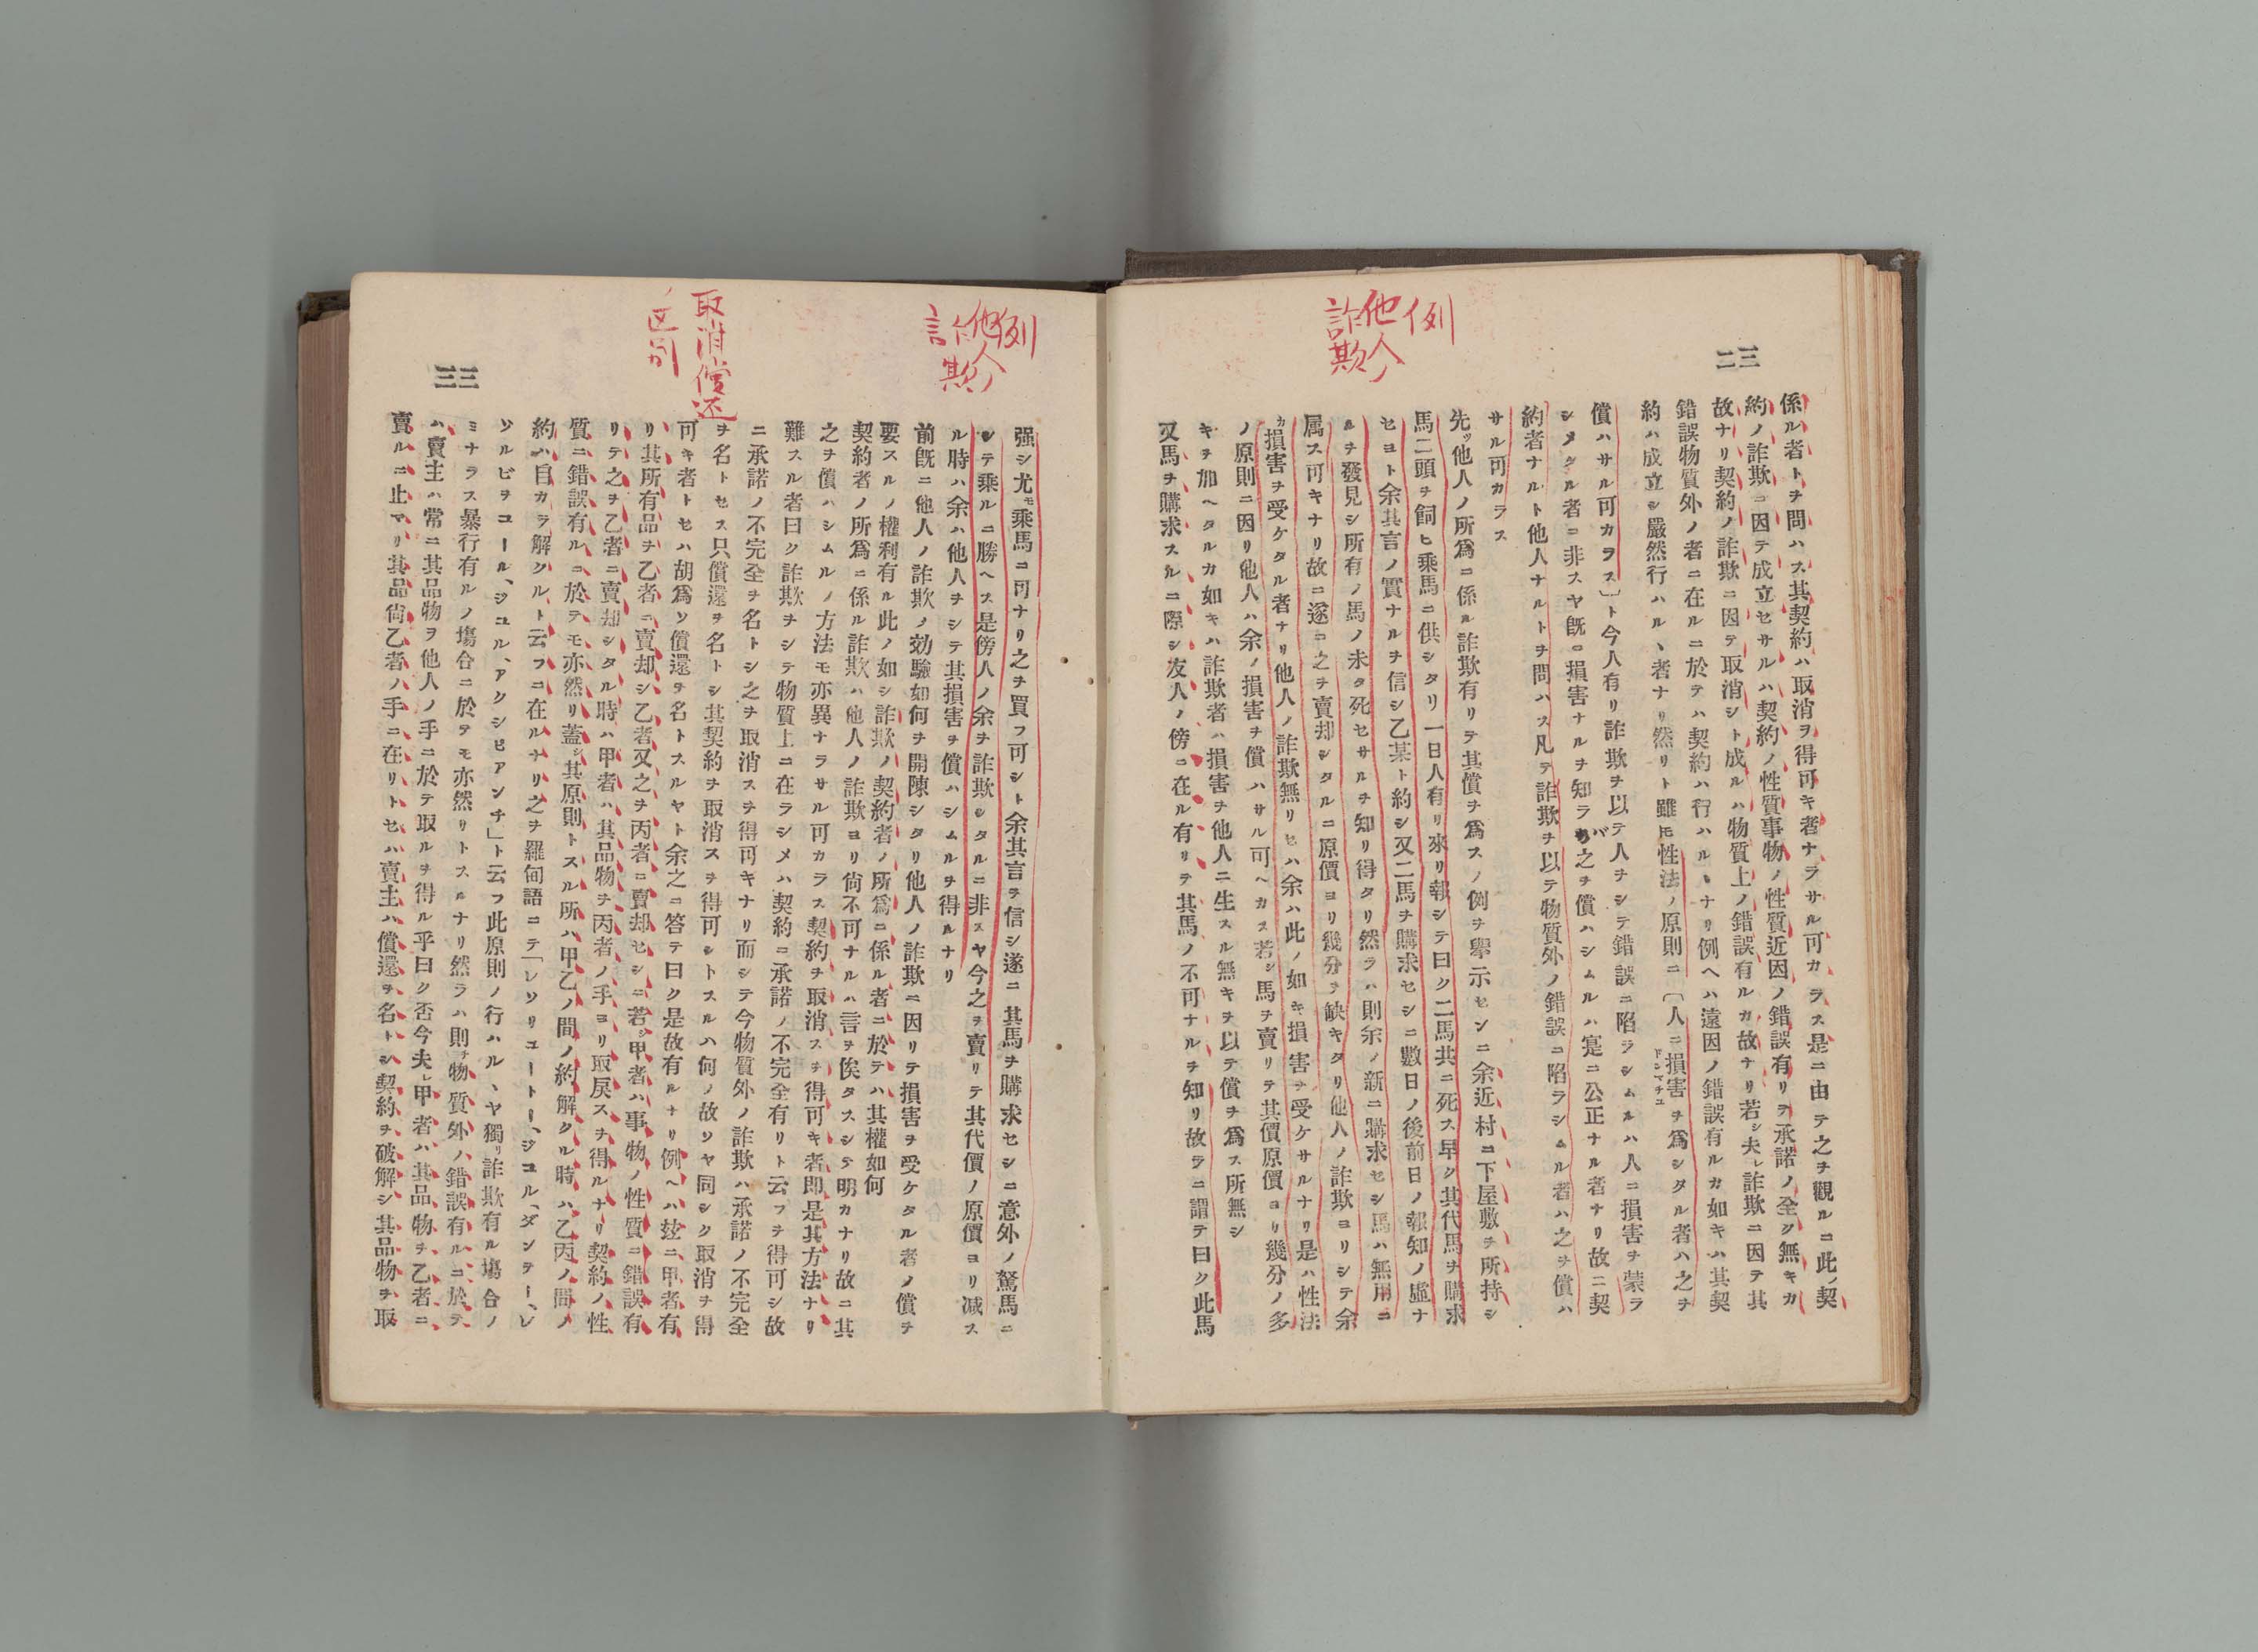 例
他人
詐欺
三二
係ル者トヲ問ハス其契約ハ取消ヲ得可キ者ナラサル可カラス是ニ由テ之ヲ觀ルニ此ノ契
約ノ詐欺ニ因テ成立セサルハ契約ノ性質事物ノ性質近因ノ錯誤有リテ承諾ノ全ク無キカ
故ナリ契約ノ詐欺ニ因テ取消シト成ルハ物質上ノ錯誤有ルカ故ナリ若シ夫レ詐欺ニ因テ其
錯誤物質外ノ者ニ在ルニ於テハ契約ハ行ハルヽナリ例ヘハ遠因ノ錯誤有ルカ如キハ其契
約ハ成立シ嚴然行ハルヽ者ナリ然リト雖モ性法ノ原則ニ〔人ニ損害ヲ爲シタル者ハ之ヲ
償ハサル可カラス〕ト今人有リ詐欺ヲ以テ人ヲシテ錯誤ニ陷ラシムルハ人ニ損害ヲ蒙ラ
シメタル者ニ非スヤ既ニ損害ナルヲ知ラバ之ヲ償ハシムルハ寔ニ公正ナル者ナリ故ニ契
約者ナルト他人ナルトヲ問ハス凡テ詐欺ヲ以テ物質外ノ錯誤ニ陷ラシムル者ハ之ヲ償ハ
サル可カラス
先ッ他人ノ所爲ニ係ル詐欺有リテ其償ヲ爲スノ例ヲ擧示センニ余近村ニ下屋敷ヲ所持シ
馬二頭ヲ飼ヒ乘馬ニ供シタリ一日人有リ來リ報シテ曰ク二馬共ニ死ス早ク其代馬ヲ購求
セヨト余其言ノ實ナルヲ信シ乙某ト約シ又二馬ヲ購求セシニ數日ノ後前日ノ報知ノ虛ナ
ルヲ發見シ所有ノ馬ノ未タ死セサルヲ知リ得タリ然ラハ則余ノ新ニ購求セシ馬ハ無用ニ
属ス可キナリ故ニ遂ニ之ヲ賣却シタルニ原價ヨリ幾分ヲ缺キタリ他人ノ詐欺ヨリシテ余
カ損害ヲ受ケタル者ナリ他人ノ詐欺無リセハ余ハ此ノ如キ損害ヲ受ケサルナリ是ハ性法
ノ原則ニ因リ他人ハ余ノ損害ヲ償ハサル可ヘカス若シ馬ヲ賣リテ其價原價ヨリ幾分ノ多
キヲ加ヘタルカ如キハ詐欺者ハ損害ヲ他人ニ生スル無キヲ以テ償ヲ爲ス所無シ
又馬ヲ購求スルニ際シ友人ノ傍ニ在ル有リテ其馬ノ不可ナルヲ知リ故ラニ謂テ曰ク此馬
例
他人
詐欺
取消償还
区別
三三
强シ尤モ乘馬ニ可ナリ之ヲ買フ可シト余其言ヲ信シ遂ニ其馬ヲ購求セシニ意外ノ駑馬ニ
シテ乘ルニ勝ヘス是傍人ノ余ヲ詐欺シタルニ非スヤ今之ヲ賣リテ其代價ノ原價ヨリ减ス
ル時ハ余ハ他人ヲシテ其損害ヲ償ハシムルヲ得ルナリ
前既ニ他人ノ詐欺ノ効驗如何ヲ開陳シタリ他人ノ詐欺ニ因リテ損害ヲ受ケタル者ノ償ヲ
要スルノ權利有ル此ノ如シ詐欺ノ契約者ノ所爲ニ係ル者ニ於テハ其權如何
契約者ノ所爲ニ係ル詐欺ハ他人ノ詐欺ヨリ尙不可ナルハ言ヲ俟タスシテ明カナリ故ニ其
之ヲ償ハシムルノ方法モ亦異ナラサル可カラス契約ヲ取消スヲ得可キ者即是其方法ナリ
難スル者曰ク詐欺ヲシテ物質上ニ在ラシメハ契約ニ承諾ノ不完全有リト云フヲ得可シ故
ニ承諾ノ不完全ヲ名トシ之ヲ取消スヲ得可キナリ而シテ今物質外ノ詐欺ハ承諾ノ不完全
ヲ名トセス只償還ヲ名トシ其契約ヲ取消スヲ得可シトスルハ何ノ故ソヤ同シク取消ヲ得
可キ者トセハ胡爲ソ償還ヲ名トスルヤト余之ニ答テ曰ク是故有ルナリ例ヘハ玆ニ甲者有
リ其所有品ヲ乙者ニ賣却シ乙者又之ヲ丙者ニ賣却セシニ若シ甲者ハ事物ノ性質ニ錯誤有
リテ之ヲ乙者ニ賣却シタル時ハ甲者ハ其品物ヲ丙者ノ手ヨリ取戾スヲ得ルナリ契約ノ性
質ニ錯誤有ルニ於テモ亦然リ蓋シ其原則トスル所ハ甲乙ノ間ノ約解クル時ハ乙丙ノ間ノ
約ハ自カラ解クルト云フニ在ルナリ之ヲ羅甸語ニテ「レソリュートー、ジユル、ダンテー、レ
ソルビヲユール、ジユル、アクシピアンチ」ト云フ此原則ノ行ハルヽヤ獨リ詐欺有ル塲合ノ
ミナラス暴行有ルノ塲合ニ於テモ亦然リトスルナリ然ラハ則チ物質外ノ錯誤有ルニ於テ
ハ賣主ハ常ニ其品物ヲ他人ノ手ニ於テ取ルヲ得ル乎曰ク否今夫レ甲者ハ其品物ヲ乙者ニ
賣ルニ止マリ其品尙乙者ノ手ニ在リトセハ賣主ハ償還ヲ名トシ契約ヲ破解シ其品物ヲ取